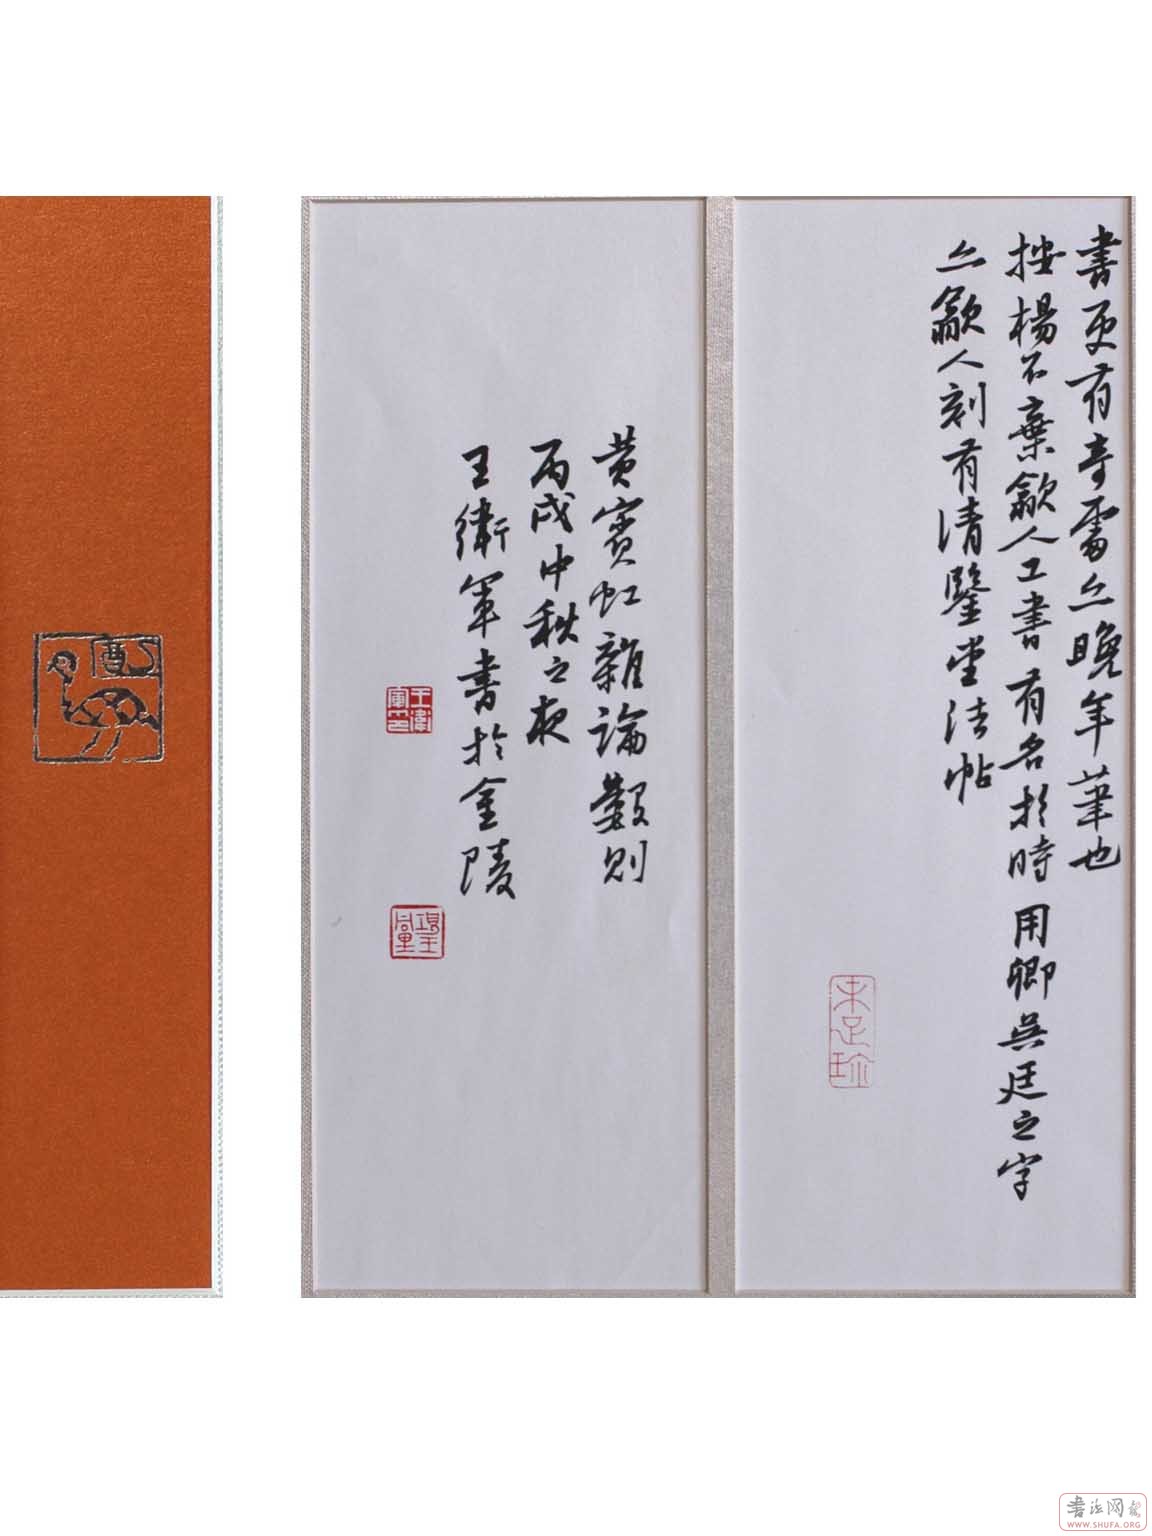 書更有奇亦晚年筆也
按楊不棄歙人工書有名於時用卿吳廷之字
亦歙人刻有清鑒堂法帖
未足珍
黄賓虹雜論數則
丙戌中秋之夜
王衛軍書於金陵
王衛軍印
酉
書法网
WWW.SHUFA.ORG